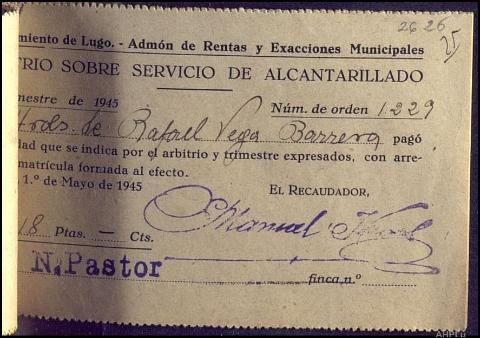 26 26
25
miento de Lugo. - Admón de Rentas y Exacciones Municipales
TRIO SOBRE SERVICIO DE ALCANTARILLADO
mestre de 1945
Núm. de orden 1.229
de Rafael Vega Barrera pagó
dad que se indica por el arbitrio y trimestre expresados, con arre-
matrícula formada al efecto.
1.º de Mayo de 1945
EL RECAUDADOR,
Manuel
18 Ptas. — Cts.
N. Pastor
finca n.º
AHPLu